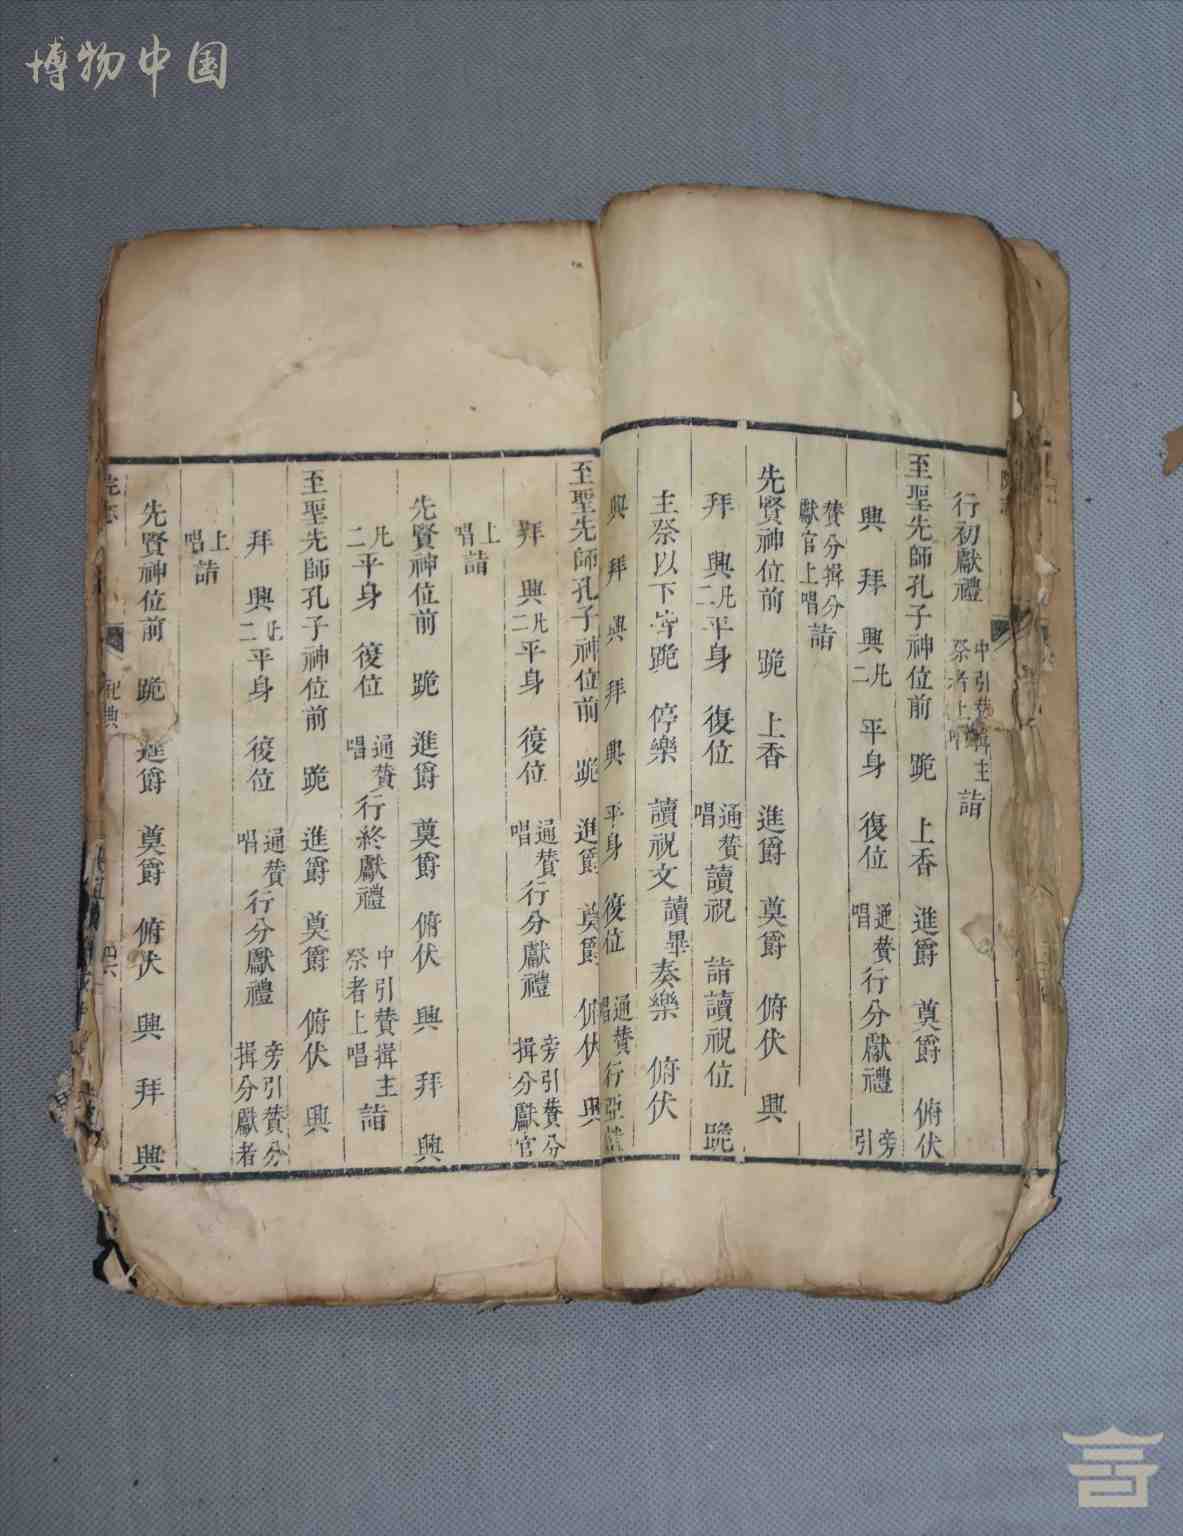 博物中国
行初獻禮 中引贊揖主祭者上唱 詣
至聖先師孔子神位前 跪 上香 進爵 奠爵 俯伏
興 拜 興 凡二 平身 復位 通贊唱 行分獻禮 旁引
贊分揖分獻官上唱 詣
先賢神位前 跪 上香 進爵 奠爵 俯伏 興
拜 興 凡二 平身 復位 通贊唱 讀祝 詣讀祝位 跪
主祭以下皆跪 停樂 讀祝文 讀畢奏樂 俯伏
興 拜 興 拜 興 平身 復位 通贊唱 行亞
至聖先師孔子神位前 跪 進爵 奠爵 俯伏 興
拜 興 凡二 平身 復位 通贊唱 行分獻禮 旁引贊分揖分獻官
上唱 詣
先賢神位前 跪 進爵 奠爵 俯伏 興 拜 興
凡二 平身 復位 通贊唱 行終獻禮 中引贊揖主祭者上唱 詣
至聖先師孔子神位前 跪 進爵 奠爵 俯伏 興
拜 興 凡二 平身 復位 通贊唱 行分獻禮 旁引贊分揖分獻者
上唱 詣
先賢神位前 跪 進爵 奠爵 俯伏 興 拜 興
祀典